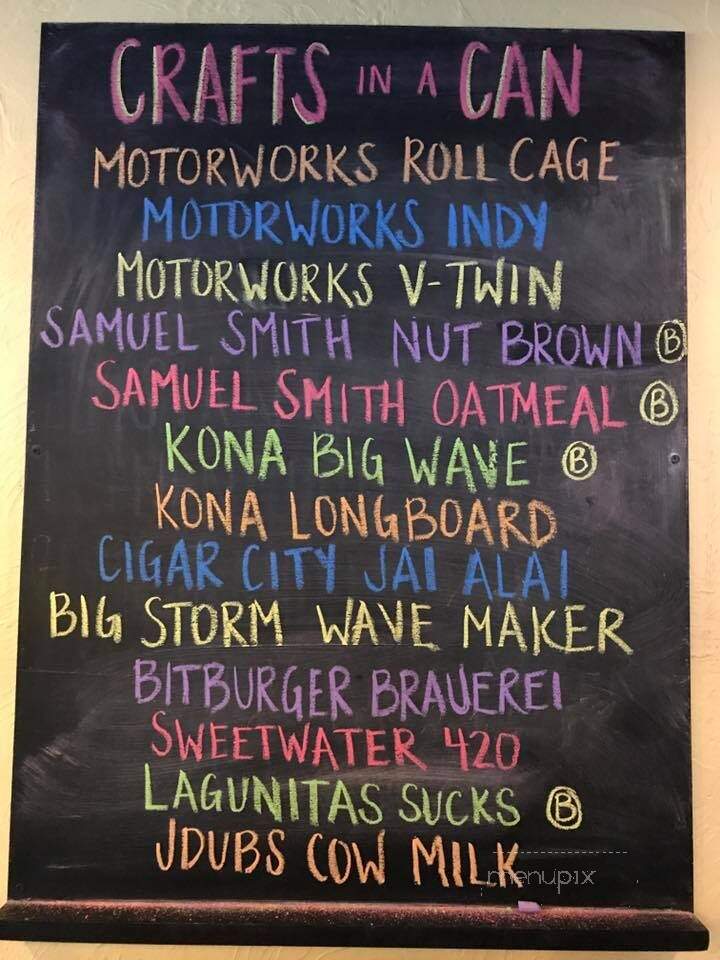 CRAFTS IN A CAN
MOTORWORKS ROLL CAGE
MOTORWORKS INDY
MOTORWORKS V-TWIN
SAMUEL SMITH NUT BROWN B
SAMUEL SMITH OATMEAL B
KONA BIG WAVE B
KONA LONGBOARD
CIGAR CITY JAI ALAI
BIG STORM WAVE MAKER
BITBURGER BRAUEREI
SWEETWATER 420
LAGUNITAS SUCKS B
JDUBS COW MILK
menupix